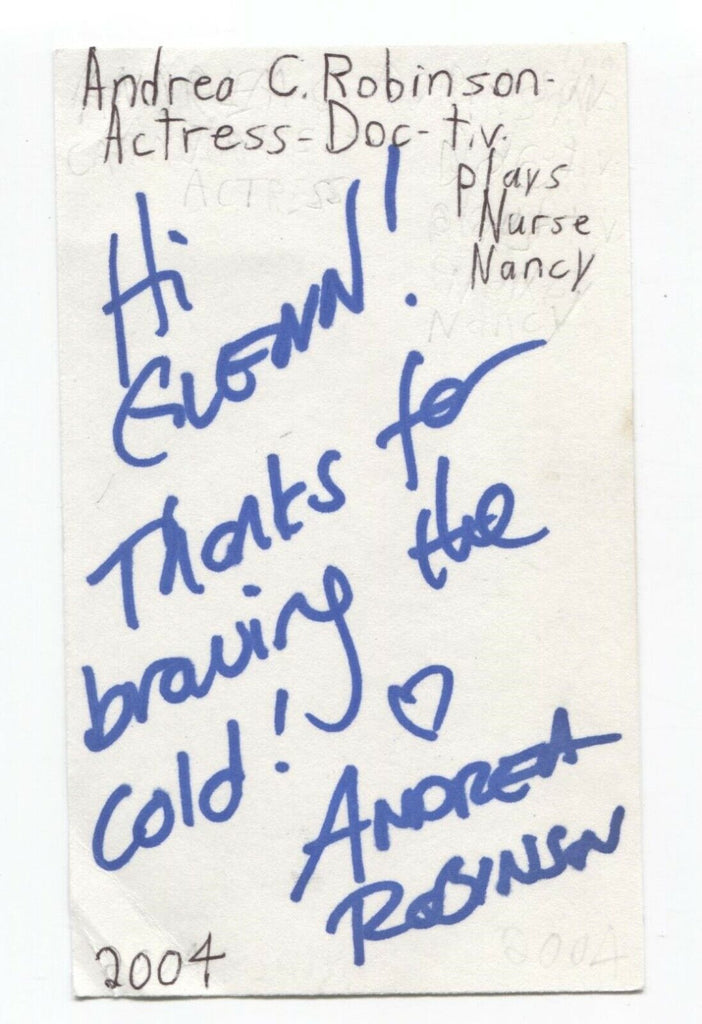 Andrea C. Robinson-
Actress-Doc-t.v.
plays
Nurse
Nancy
Hi
GLENN!
Thanks for
braving the
cold! ♡
ANDREA
ROBINSON
2004
ACTRESS
Nancy
2004